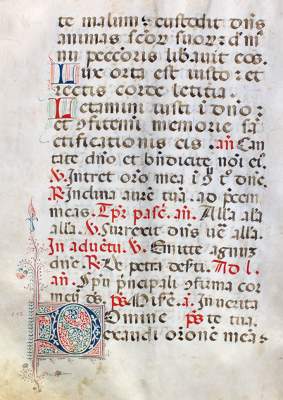 te malum: custodit dns
animas scor suor: d mi
nu peccoris libavit eos.
Lux orta est iusto: et
rectis corde letitia.
Letamini iusti i dno:
et confitemi memorie sa
ctificationis eis. an. Can
tate dno et bndicite noi ei.
V. Intret oro mea i tuo dne.
R. Inclina aure tua. ad pcem
meas. Tpr pasc. an. Alla alla
alla. V. Surrexit dns ve alla.
In adventu. V. Emitte agnum
dne. R. De petra destu. Ad l.
an. Spu pncipali confirma cor
meu ds. ps. Mise. a. In verita
Domine ps te tua.
exaudi orone meas